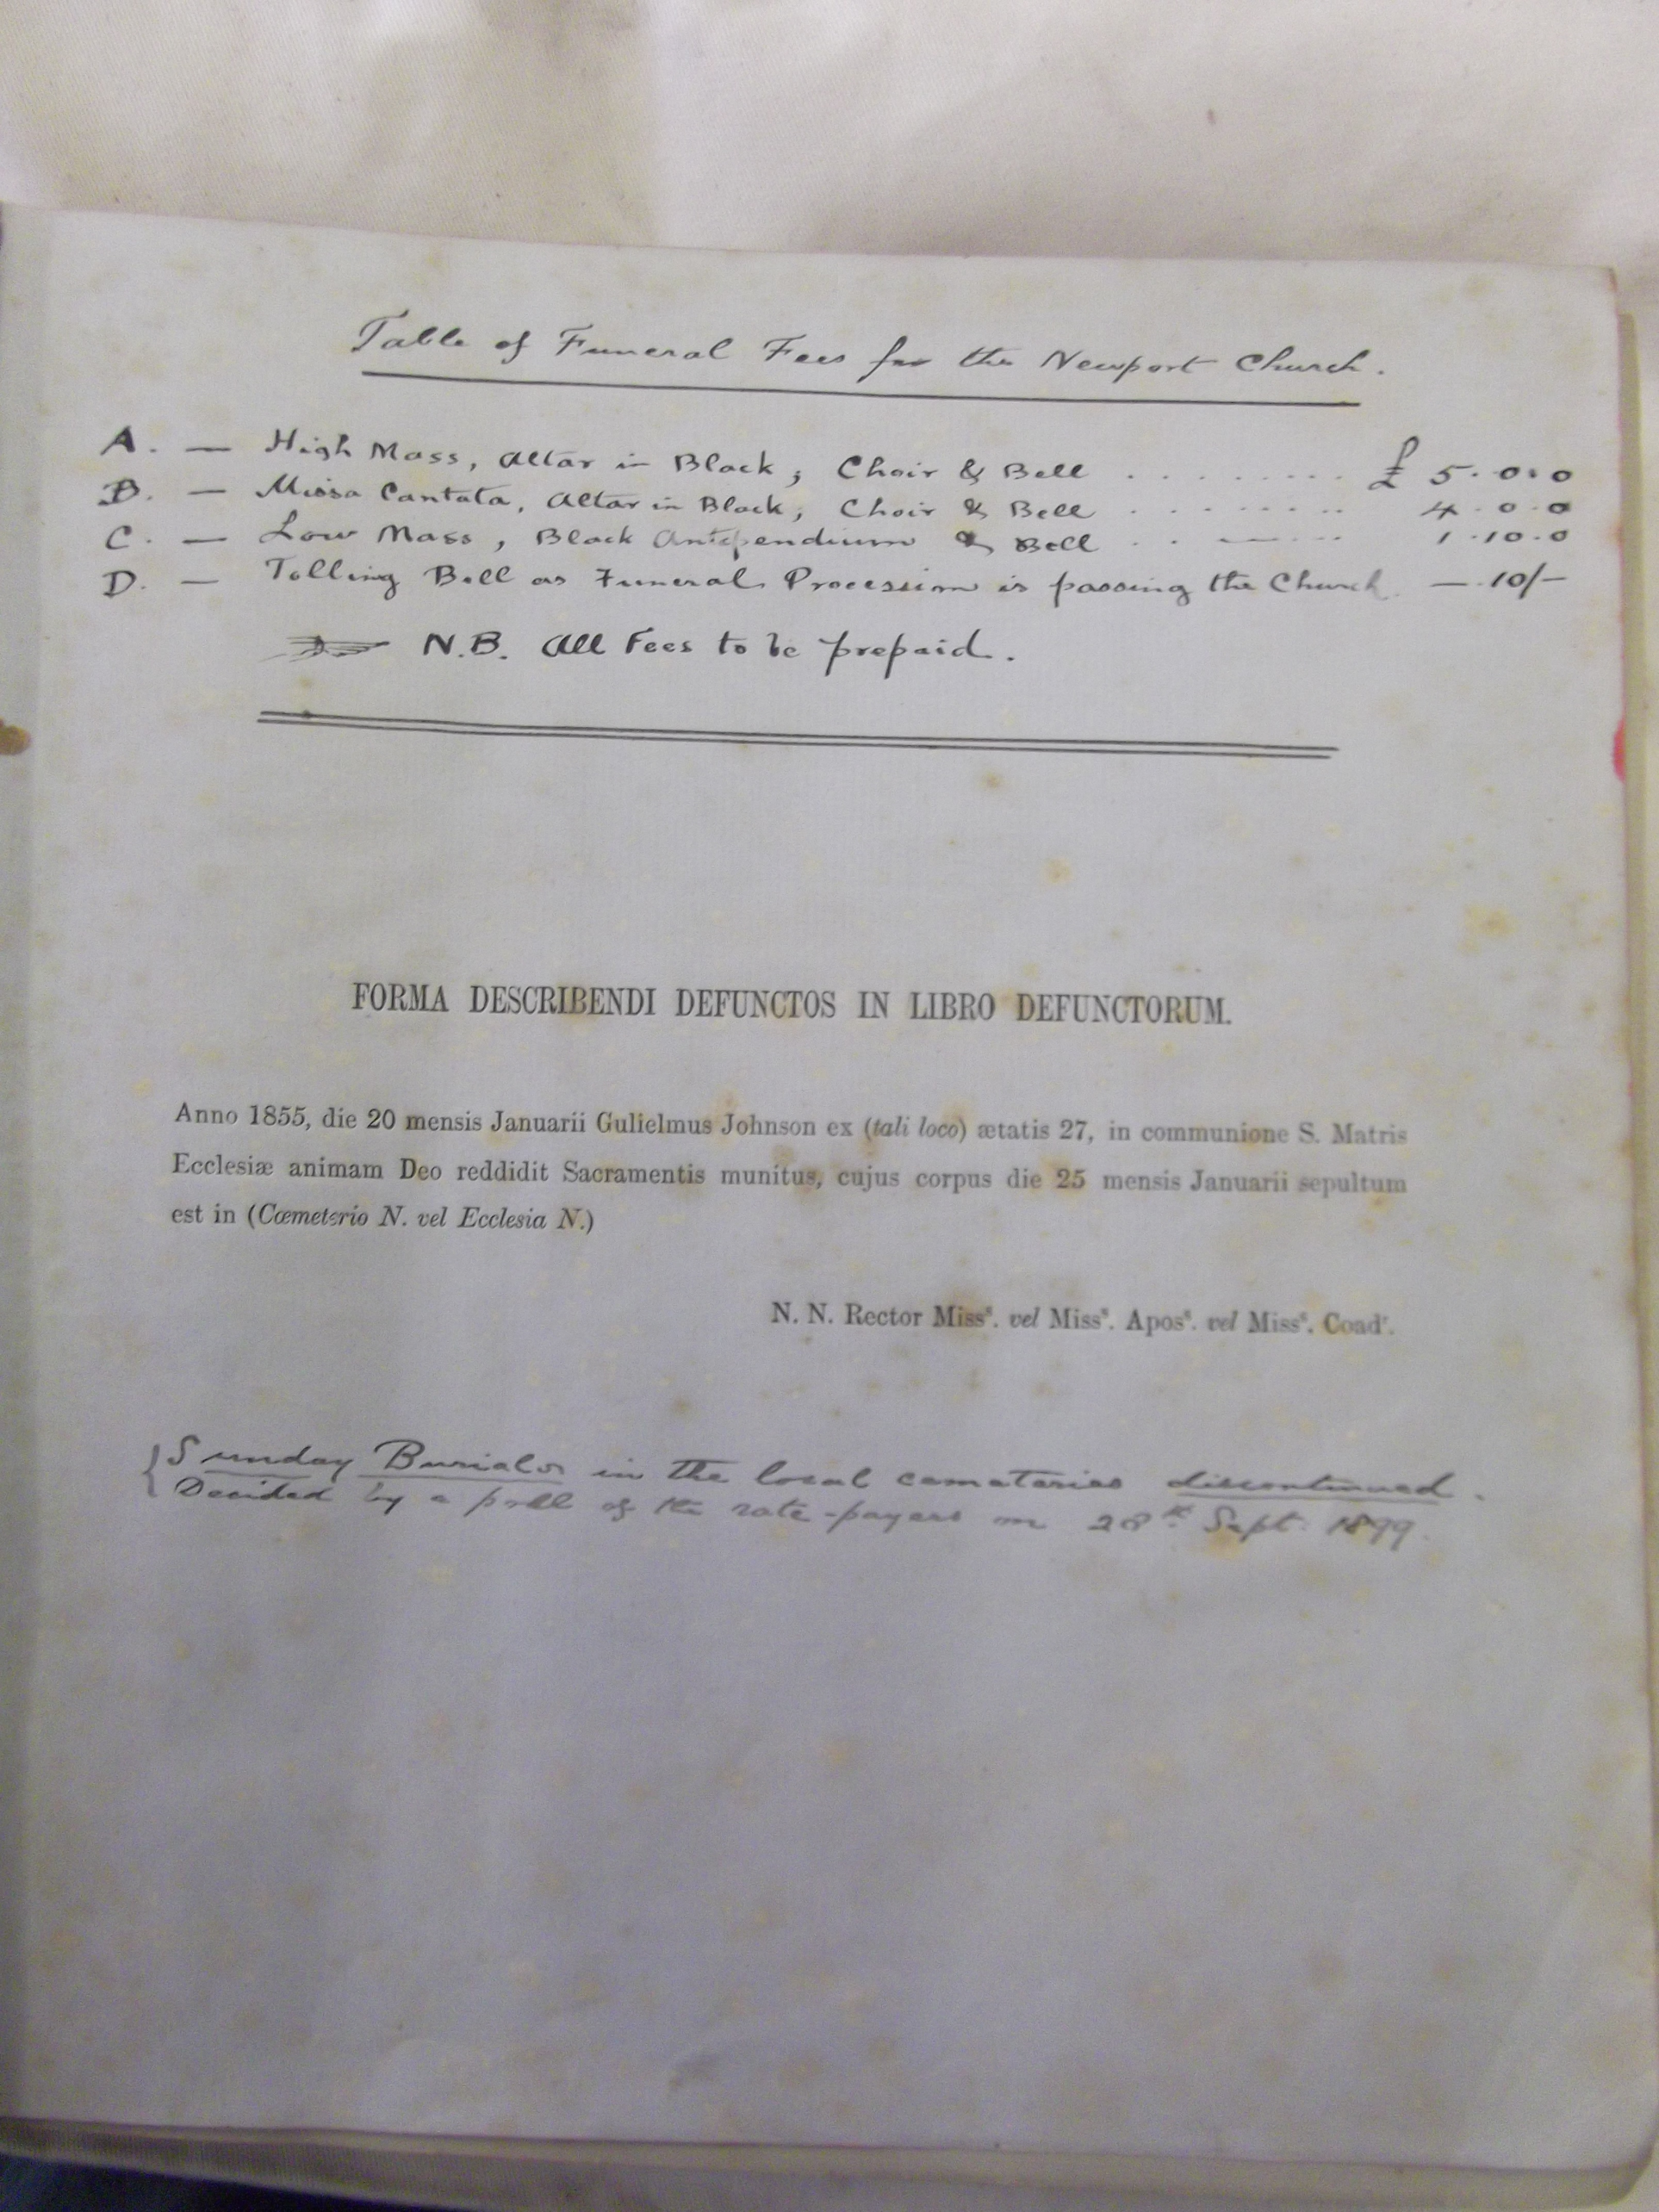 Table of Funeral Fees for the Newport Church.
A. — High Mass, Altar in Black, Choir & Bell ......... £ 5.0.0
B. — Missa Cantata, Altar in Black, Choir & Bell ........ 4.0.0
C. — Low Mass, Black Antependium & Bell .. — ... 1.10.0
D. — Tolling Bell as Funeral Procession is passing the Church. — 10/-
N.B. All Fees to be prepaid.
FORMA DESCRIBENDI DEFUNCTOS IN LIBRO DEFUNCTORUM.
Anno 1855, die 20 mensis Januarii Gulielmus Johnson ex (tali loco) ætatis 27, in communione S. Matris
Ecclesiæ animam Deo reddidit Sacramentis munitus, cujus corpus die 25 mensis Januarii sepultum
est in (Cœmeterio N. vel Ecclesia N.)
N. N. Rector Missˢ. vel Missˢ. Aposˢ. vel Missˢ. Coadʳ.
Sunday Burials in the local cemeteries discontinued.
Decided by a poll of the rate-payers on 28th Sept. 1899.